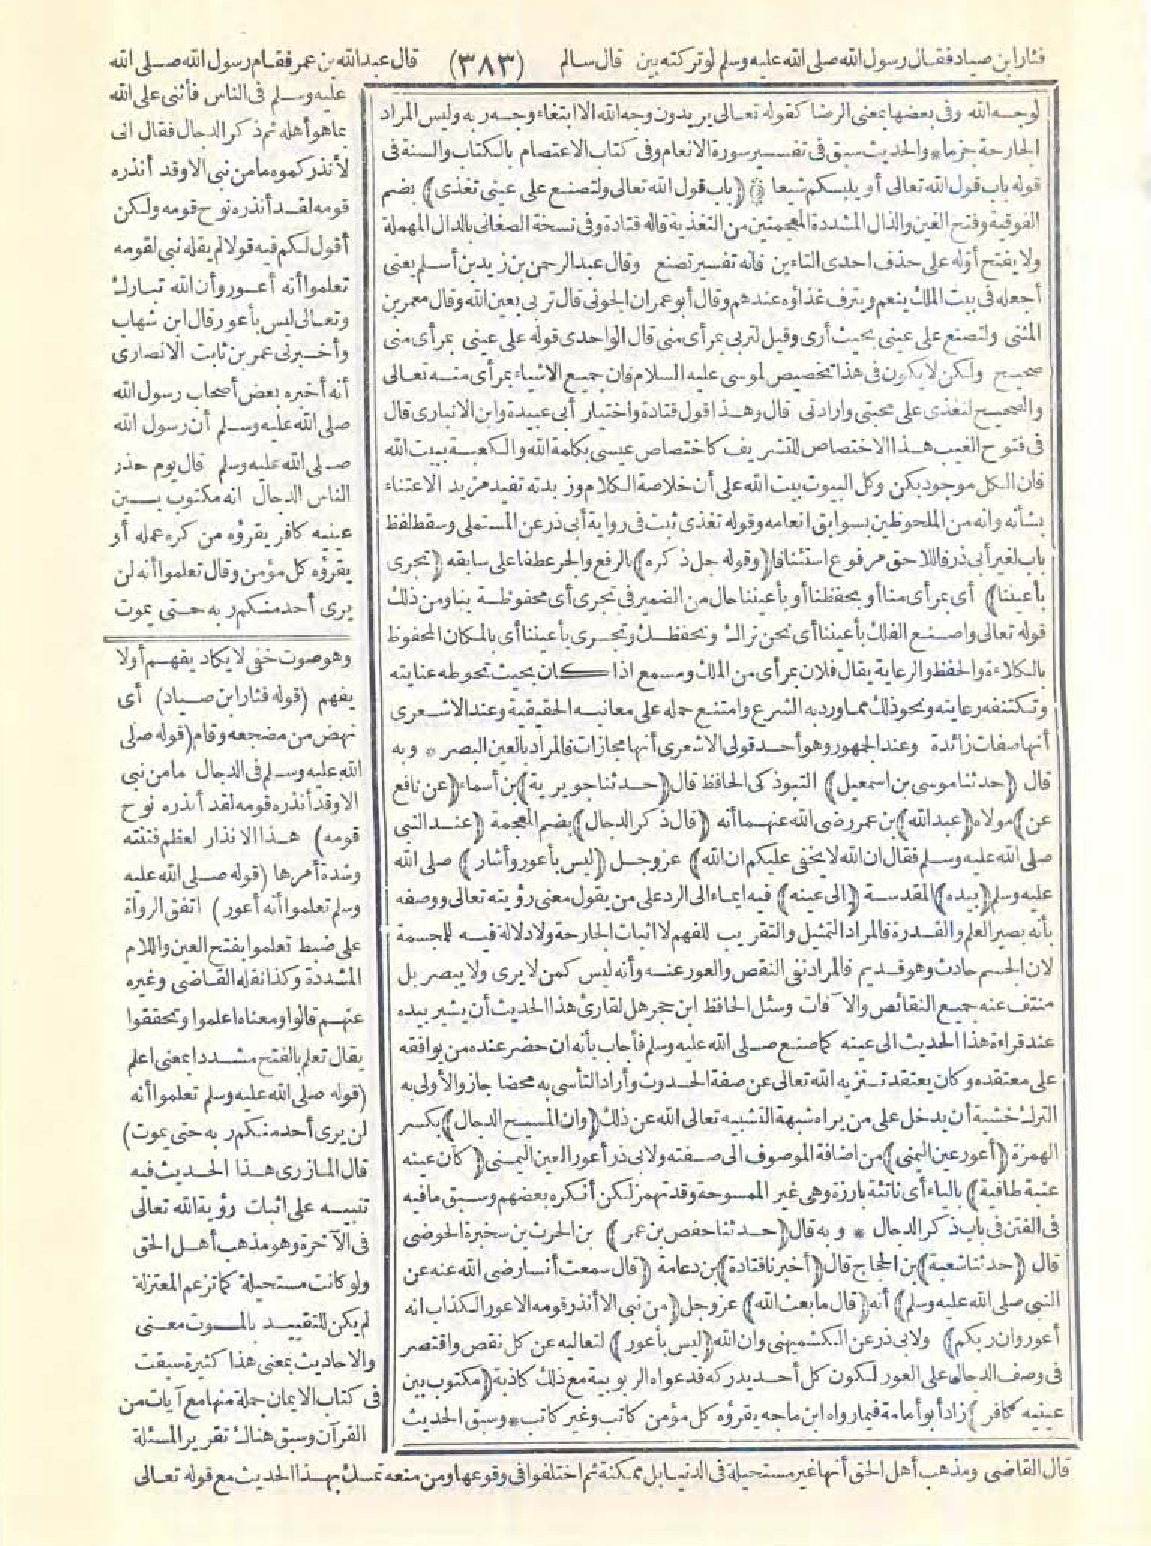 فثار ابن صياد فقال رسول الله صلى الله عليه وسلم لو تركته بين قال سالم (٣٨٣) قال عبدالله بن عمر فقام رسول الله صلى الله
لوجه الله وفى بعضها بمعنى الرضا كقوله تعالى يريدون وجه الله الا ابتغاء وجه ربه وليس المراد
الجارحة جزما * والحديث سبق فى تفسير سورة الانعام وفى كتاب الاعتصام بالكتاب والسنة فى
قوله باب قول الله تعالى أو يلبسكم شيعا (باب قول الله تعالى ولتصنع على عينى تغذى) بضم
الفوقية وفتح الغين والذال المشددة المعجمتين من التغذية قاله قتادة وفى نسخة الصغانى بالدال المهملة
ولا يفتح أوله على حذف احدى التاءين فانه تفسير تصنع وقال عبد الرحمن بن زيد بن أسلم يعنى
أجعله فى بيت الملك ينعم ويترف غذاؤه عندهم وقال أبو عمران الجونى قال تربى بعين الله وقال معمر بن
المثنى ولتصنع على عينى بحيث أرى وقيل لتربى بمرأى منى قال الواحدى قوله على عينى بمرأى منى
صحيح ولكن لا يكون فى هذا تخصيص لموسى عليه السلام فان جميع الاشياء بمرأى منه تعالى
والصحيح لتغذى على محبتى وارادتى قال وهذا قول قتادة واختيار أبى عبيدة وابن الانبارى قال
فى فتوح الغيب هذا الاختصاص للتشريف كاختصاص عيسى بكلمة الله والكعبة ببيت الله
فان الكل موجود بكن وكل البيوت بيت الله على أن خلاصة الكلام وزبدته تفيد مزيد الاعتناء
بشأنه وانه من الملحوظين بسوابق انعامه وقوله تغذى ثبت فى رواية أبى ذر عن المستملى وسقط لفظ
باب لغير أبى ذر فاللاحق مرفوع استئنافا (وقوله جل ذكره) بالرفع والجر عطفا على سابقه (تجرى
بأعيننا) أى بمرأى منا أو بحفظنا أو بأعيننا حال من الضمير فى تجرى أى محفوظة بنا ومن ذلك
قوله تعالى واصنع الفلك بأعيننا أى نحن نراك ونحفظك وتجرى بأعيننا أى بالمكان المحفوظ
بالكلاءة والحفظ والرعاية يقال فلان بمرأى من الملك ومسمع اذا كان بحيث تحوطه عنايته
وتكتنفه رعايته ونحو ذلك مما ورد به الشرع وامتنع حمله على معانيه الحقيقية وعند الاشعرى
أنها صفات زائدة وعند الجمهور وهو أحد قولى الاشعرى أنها مجازات فالمراد بالعين البصر * وبه
قال (حدثنا موسى بن اسمعيل) التبوذكى الحافظ قال (حدثنا جويرية) بن أسماء (عن نافع
عن) مولاه (عبدالله) بن عمر رضى الله عنهما أنه (قال ذكر الدجال) بضم المعجمة (عند النبى
صلى الله عليه وسلم فقال ان الله لا يخفى عليكم ان الله) عز وجل (ليس بأعور وأشار) صلى الله
عليه وسلم (بيده) المقدسة (الى عينه) فيه ايماء الى الرد على من يقول معنى رؤيته تعالى ووصفه
بأنه بصير العلم والقدرة فالمراد التمثيل والتقريب للفهم لا اثبات الجارحة ولا دلالة فيه للمجسمة
لان الجسم حادث وهو قديم فالمراد نفى النقص والعور عنه وأنه ليس كمن لا يرى ولا يبصر بل
منتف عنه جميع النقائص والآفات وسئل الحافظ ابن حجر هل لقارئ هذا الحديث أن يشير بيده
عند قراءة هذا الحديث الى عينه كما صنع صلى الله عليه وسلم فأجاب بأنه ان حضر عنده من يوافقه
على معتقده وكان يعتقد تنزيه الله تعالى عن صفة الحدوث وأراد التأسى به محضا جاز والاولى به
الترك خشية أن يدخل على من يراه شبهة التشبيه تعالى الله عن ذلك (وان المسيح الدجال) بكسر
الهمزة (أعور عين اليمنى) من اضافة الموصوف الى صفته ولابى ذر أعور العين اليمنى (كأن عينه
عنبة طافية) بالياء أى ناتئة بارزة وهى غير الممسوحة وقد تهمز لكن أنكره بعضهم وسبق ما فيه
فى الفتن فى باب ذكر الدجال * وبه قال (حدثنا حفص بن عمر) بن الحرث بن سخبرة الحوضى
قال (حدثنا شعبة) بن الحجاج قال (أخبرنا قتادة) بن دعامة (قال سمعت أنسا رضى الله عنه عن
النبى صلى الله عليه وسلم) أنه (قال ما بعث الله) عز وجل (من نبى الا أنذر قومه الاعور الكذاب انه
أعور وان ربكم) ولابى ذر عن الكشميهنى وان الله (ليس بأعور) لتعاليه عن كل نقص واقتصر
فى وصف الدجال على العور لكون كل أحد يدركه فدعواه الربوبية مع ذلك كاذبة (مكتوب بين
عينيه كافر) زاد أبو أمامة فيما رواه ابن ماجه يقرؤه كل مؤمن كاتب وغير كاتب * وسبق الحديث
عليه وسلم فى الناس فأثنى على الله
بما هو أهله ثم ذكر الدجال فقال انى
لأنذركموه ما من نبى الا وقد أنذره
قومه لقد أنذره نوح قومه ولكن
أقول لكم فيه قولا لم يقله نبى لقومه
تعلموا أنه أعور وأن الله تبارك
وتعالى ليس بأعور قال ابن شهاب
وأخبرنى عمر بن ثابت الانصارى
أنه أخبره بعض أصحاب رسول الله
صلى الله عليه وسلم أن رسول الله
صلى الله عليه وسلم قال يوم حذر
الناس الدجال انه مكتوب بين
عينيه كافر يقرؤه من كره عمله أو
يقرؤه كل مؤمن وقال تعلموا أنه لن
يرى أحد منكم ربه حتى يموت
وهو صوت خفى لا يكاد يفهم أو لا
يفهم (قوله فثار ابن صياد) أى
نهض من مضجعه وقام (قوله صلى
الله عليه وسلم فى الدجال ما من نبى
الا وقد أنذره قومه لقد أنذره نوح
قومه) هذا الانذار لعظم فتنته
وشدة أمرها (قوله صلى الله عليه
وسلم تعلموا أنه أعور) اتفق الرواة
على ضبط تعلموا بفتح العين واللام
المشددة وكذا نقله القاضى وغيره
عنهم قالوا ومعناه اعلموا وتحققوا
يقال تعلم بالفتح مشددا بمعنى اعلم
(قوله صلى الله عليه وسلم تعلموا أنه
لن يرى أحد منكم ربه حتى يموت)
قال المازرى هذا الحديث فيه
تنبيه على اثبات رؤية الله تعالى
فى الآخرة وهو مذهب أهل الحق
ولو كانت مستحيلة كما تزعم المعتزلة
لم يكن للتقييد بالموت معنى
والاحاديث بمعنى هذا كثيرة سبقت
فى كتاب الايمان جملة منها مع آيات من
القرآن وسبق هناك تقرير المسئلة
قال القاضى ومذهب أهل الحق أنها غير مستحيلة فى الدنيا بل ممكنة ثم اختلفوا فى وقوعها ومن منعه تمسك بهذا الحديث مع قوله تعالى